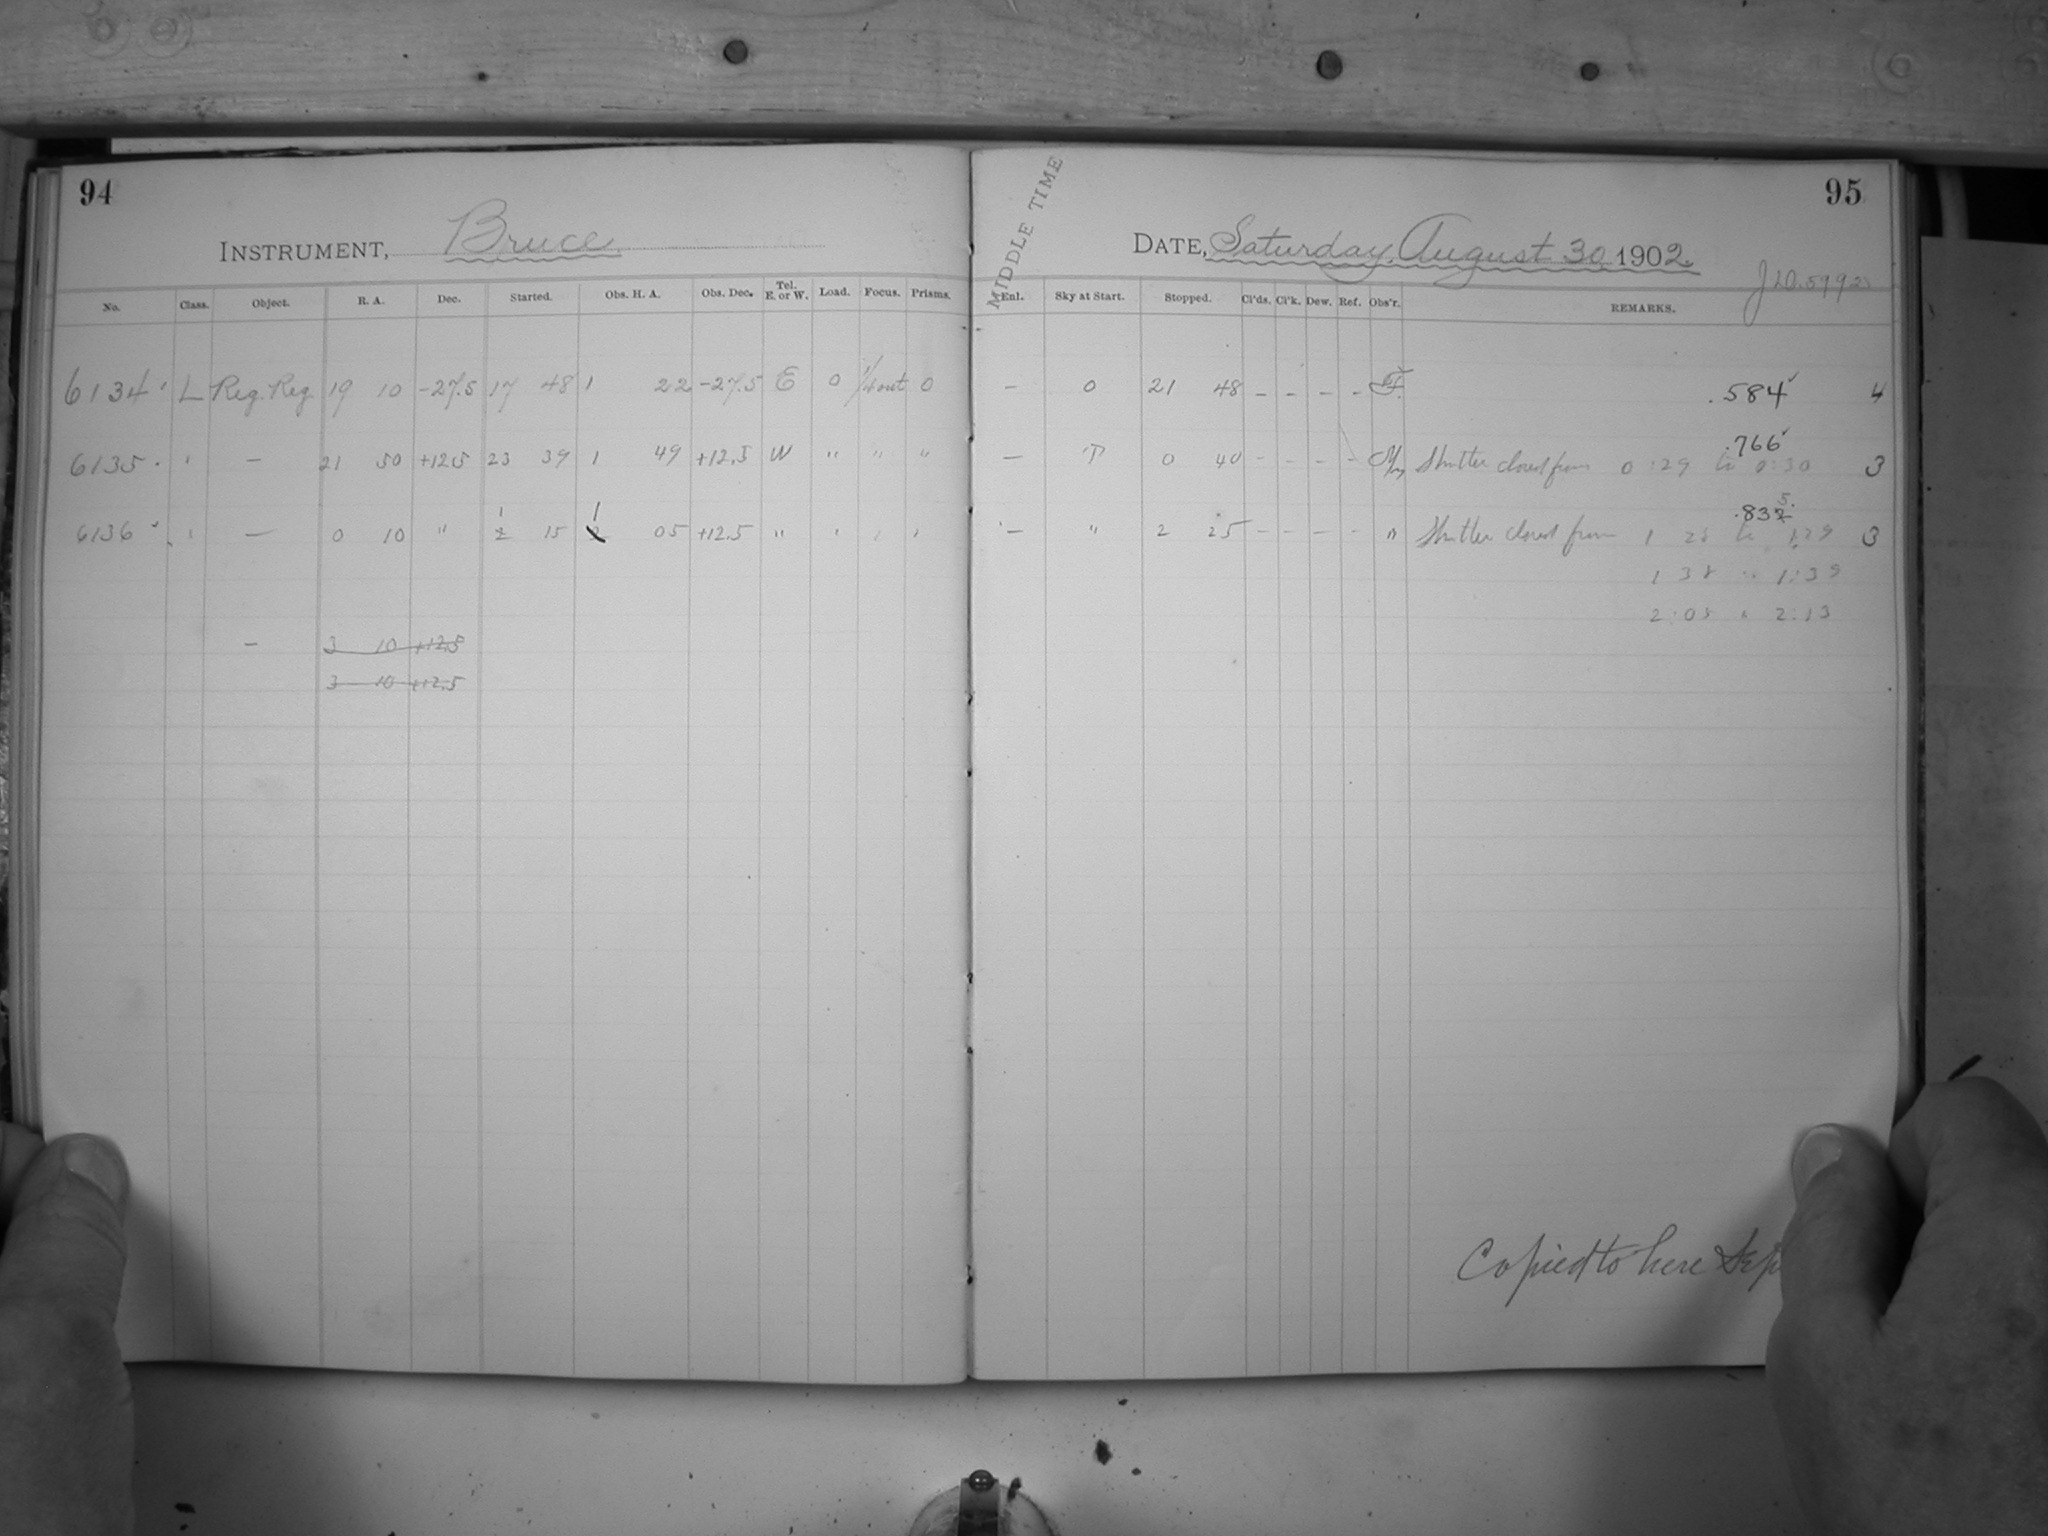 94
INSTRUMENT, Bruce
No. Class. Object. R. A. Dec. Started. Obs. H. A. Obs. Dec. Tel. E. or W. Load. Focus. Prisms.
6134 L Reg. Reg 19 10 -27.5 17 48 1 22 -27.5 E 0 1/4 out 0
6135 " — 21 50 +12.5 23 39 1 49 +12.5 W " " "
6136 " — 0 10 " 1 15 1 05 +12.5 " " " "
— 3 10 +12.5
3 10 +12.5
MIDDLE TIME
95
DATE, Saturday, August 30 1902.
Enl. Sky at Start. Stopped. Cl'ds. Cl'k. Dew. Ref. Obs'r. REMARKS.
— 0 21 48 - - - - .584 4
.766
— T 0 40 - - - - Shutter closed from 0:29 to 0:30 3
.835
— " 2 25 - - - - " Shutter closed from 1 28 to 1:29 3
1 38 " 1:39
2:05 " 2:13
Copied to here Sep